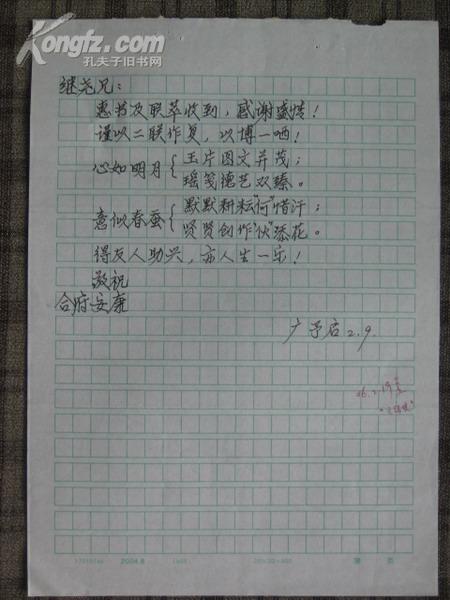 Kongfz.com
孔夫子旧书网
继尧兄：
惠书及联萃收到，感谢盛情！
谨以二联作复，以博一哂！
心如明月{玉片图文并茂；
瑶笺德艺双臻。
意似春蚕{默默耕耘"何"惜汗；
贤贤创作"伙"添花。
得友人助兴，亦人生一乐！
敬祝
合府安康
广予启 2.9.
2004.8
第 页